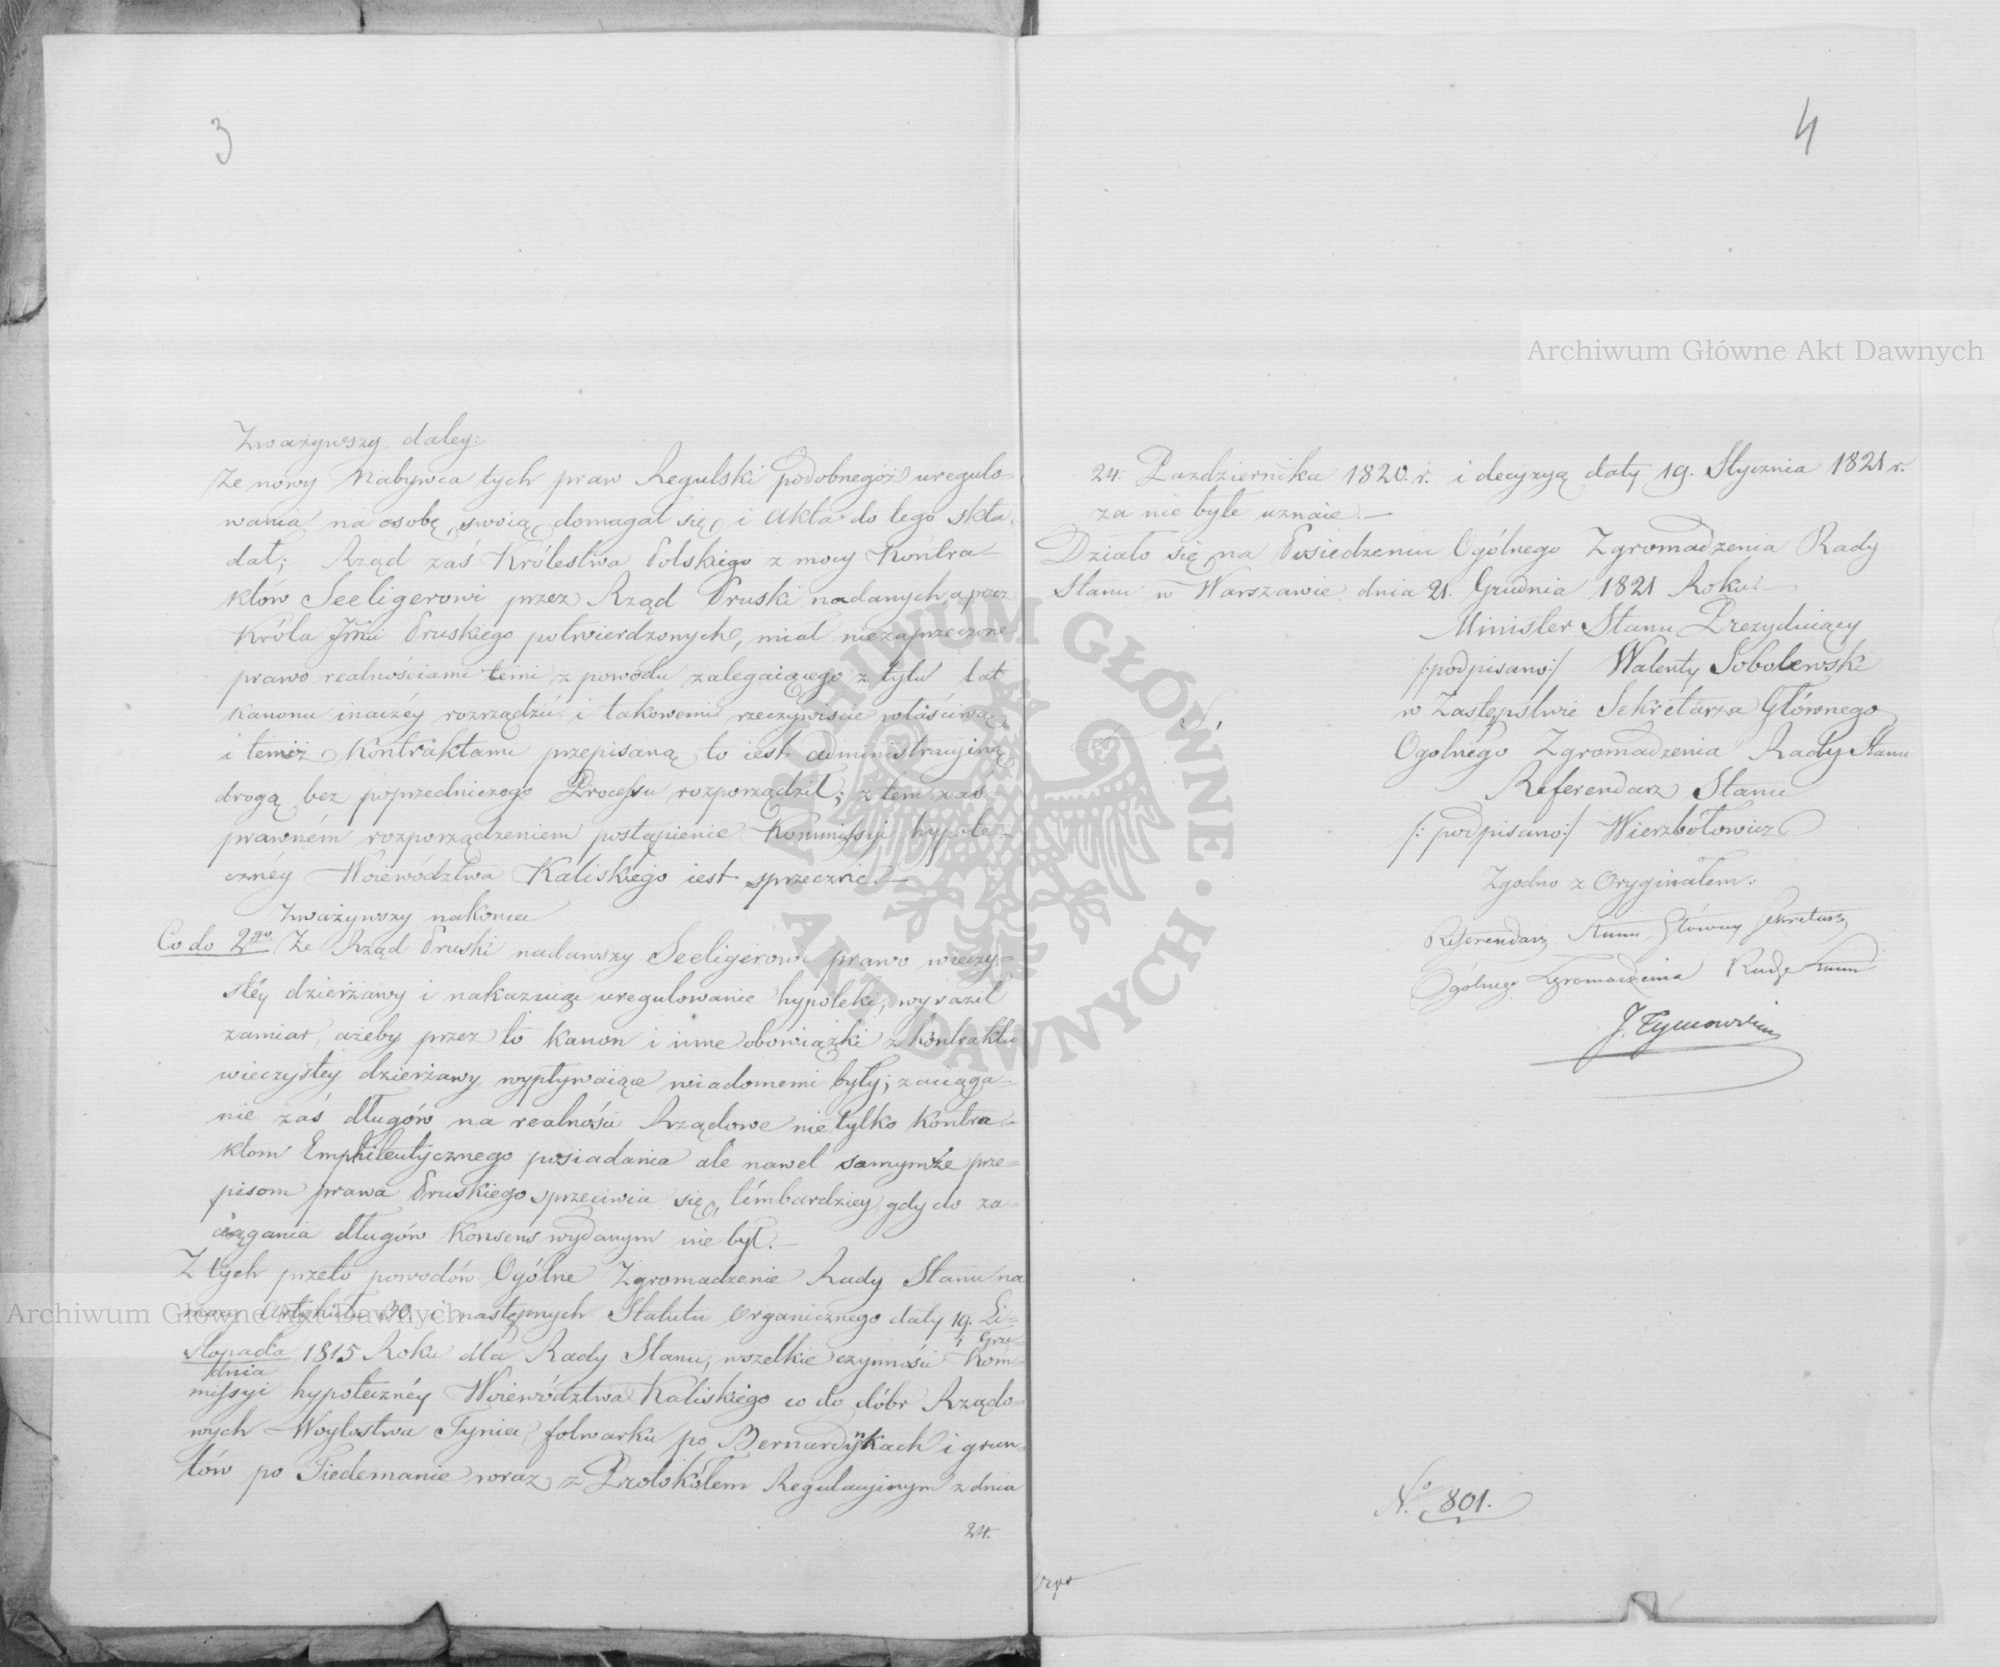 3
Zważywszy daley:
Że nowy Nabywca tych praw Regulski podobnegoż uregulo-
wania na osobę swoią domagał się, i Akta do tego skła-
dał; Rząd zaś Królestwa Polskiego z mocy Kontra-
któw Seeligerowi przez Rząd Pruski nadanych, a przez
Króla Jmci Pruskiego potwierdzonych, miał niezaprzeczone
prawo realnościami temi z powodu zalegaiącego z tylu lat
Kanonu inaczéy rozrządzić i takowemi rzeczywiście właściwą
i temiż Kontraktami przepisaną to iest administracyiną
drogą bez poprzedniczego Processu rozporządził; z tem zaś
prawném rozporządzeniem postąpienie Kommissyi hypote-
cznéy Woiewództwa Kaliskiego iest sprzeczne.—
Zważywszy nakoniec
Co do 2go Że Rząd Pruski nadawszy Seeligerowi prawo wieczy-
stéy dzierżawy i nakazuiąc uregulowanie hypoteki, wyraził
zamiar, ażeby przez to Kanon i inne obowiązki z Kontraktu
wieczystéy dzierżawy wypływaiące wiadomemi były; zaciąga-
nie zaś długów na realności Rządowe nie tylko Kontra-
ktom Emphiteutycznego posiadania ale nawet samymże prze-
pisom prawa Pruskiego sprzeciwia się, témbardziey gdy do za-
ciągania długów Konsens wydanym nie był.—
Z tych przeto powodów Ogólne Zgromadzenie Rady Stanu na
mocy Artykułu 30. i następnych Statutu Organicznego daty 19. Li-
stopada 1815 Roku dla Rady Stanu, wszelkie czynności Kom-
1 Gru-
dnia
missyi hypotecznéy Woiewództwa Kaliskiego co do dóbr Rządo-
wych Woytostwa Tyniec, folwarku po Bernardynkach i grun-
tów po Tiedemanie wraz z Protokółem Regulacyinym z dnia
24.
4
24. Października 1820. r. i decyzyą daty 19. Stycznia 1821 r.
za nie byłe uznaie.—
Działo się na Posiedzeniu Ogólnego Zgromadzenia Rady
Stanu w Warszawie dnia 21. Grudnia 1821 Roku.—
Minister Stanu Prezyduiący
/:podpisano:/ Walenty Sobolewski
w Zastępstwie Sekretarza Głównego
Ogólnego Zgromadzenia Rady Stanu
Referendarz Stanu
/:podpisano:/ Wierzbołowicz
Zgodno z Oryginałem.
Referendarz Stanu Główny Sekretarz
Ogólnego Zgromadzenia Rady Stanu
J. Tymowski
No 801.
Archiwum Główne Akt Dawnych
Archiwum Główne Akt Dawnych
ARCHIWUM GŁÓWNE · AKT DAWNYCH ·